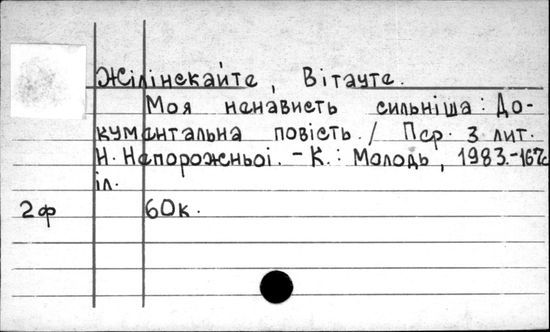 Жілінскайте, Вітауте.
Моя ненависть сильніша: До-
кументальна повість. / Пер. з лит.
Н. Непорожньої. - К.: Молодь, 1983.-167с.
іл.
2ф 60к.